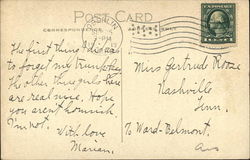 POST CARD
CORRESPONDENCE
The first thing I did was
to forget my trunk key.
The other three girls here
are real nice. Hope
you aren't homesick
I'm not.
With love
Marian.
Miss Gertrude
Nashville
Tenn.
To Ward-Belmont.